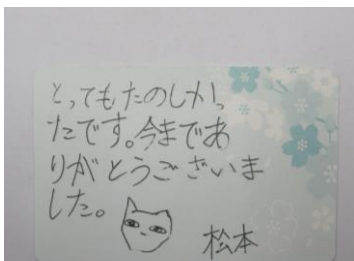 とってもたのしかっ
たです。今まであ
りがとうございま
した。
松本